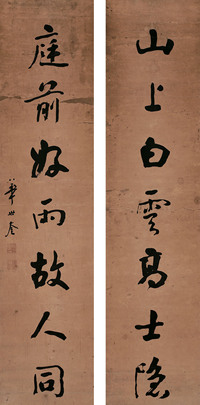 山上白雲高士隐
庭前好雨故人同
華世奎